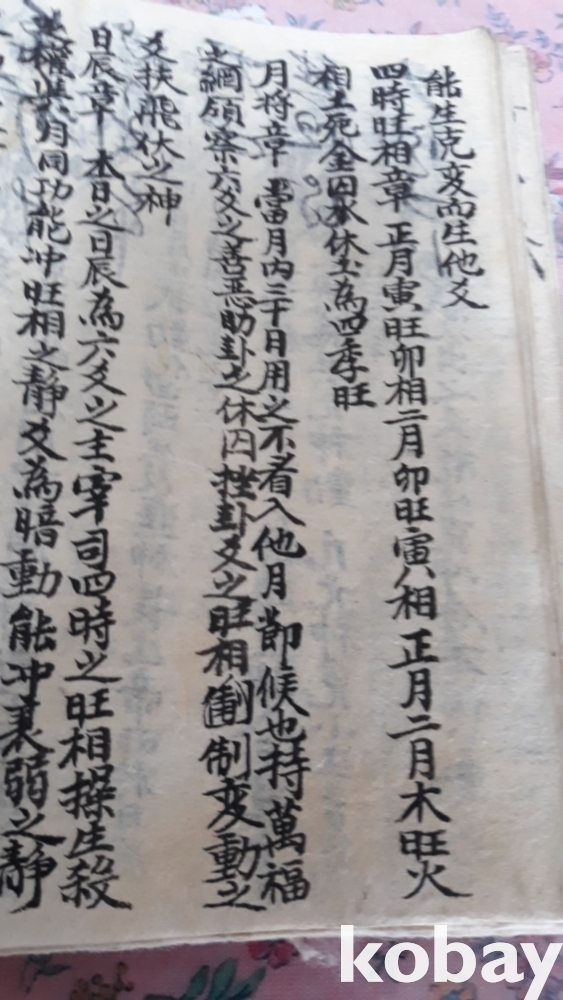 能生克変而生他爻
四時旺相章 正月寅旺卯相二月卯旺寅相 正月二月木旺火
相土死金囚水休土為四季旺
月将章 當月内三十日用之不看入他月節候也持萬福
之綱領察六爻之善悪助卦之休囚挫卦爻之旺相制変動之
爻扶飛伏之神
日辰章 本日之日辰為六爻之主宰司四時之旺相操生殺
之權與月同功能冲旺相之静爻為暗動能冲衰弱之静
kobay